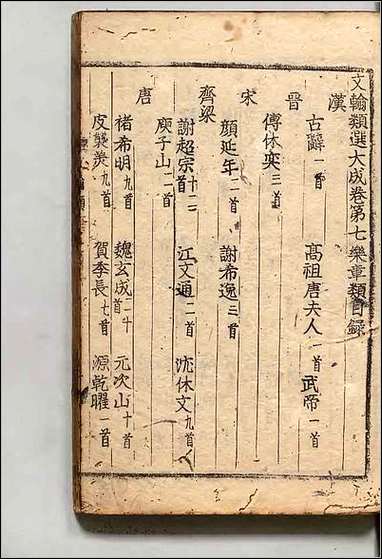 文翰類選大成卷第七樂章類目録
漢
古辭一首 高祖唐夫人一首 武帝一首
晉
傅休奕三首
宋
顔延年二首 謝希逸三首
齊梁
謝超宗十二首 江文通二首 沈休文九首
庾子山一首
唐
褚希明九首 魏玄成一十首 元次山十首
皮襲美九首 賀季長七首 源乾曜一首